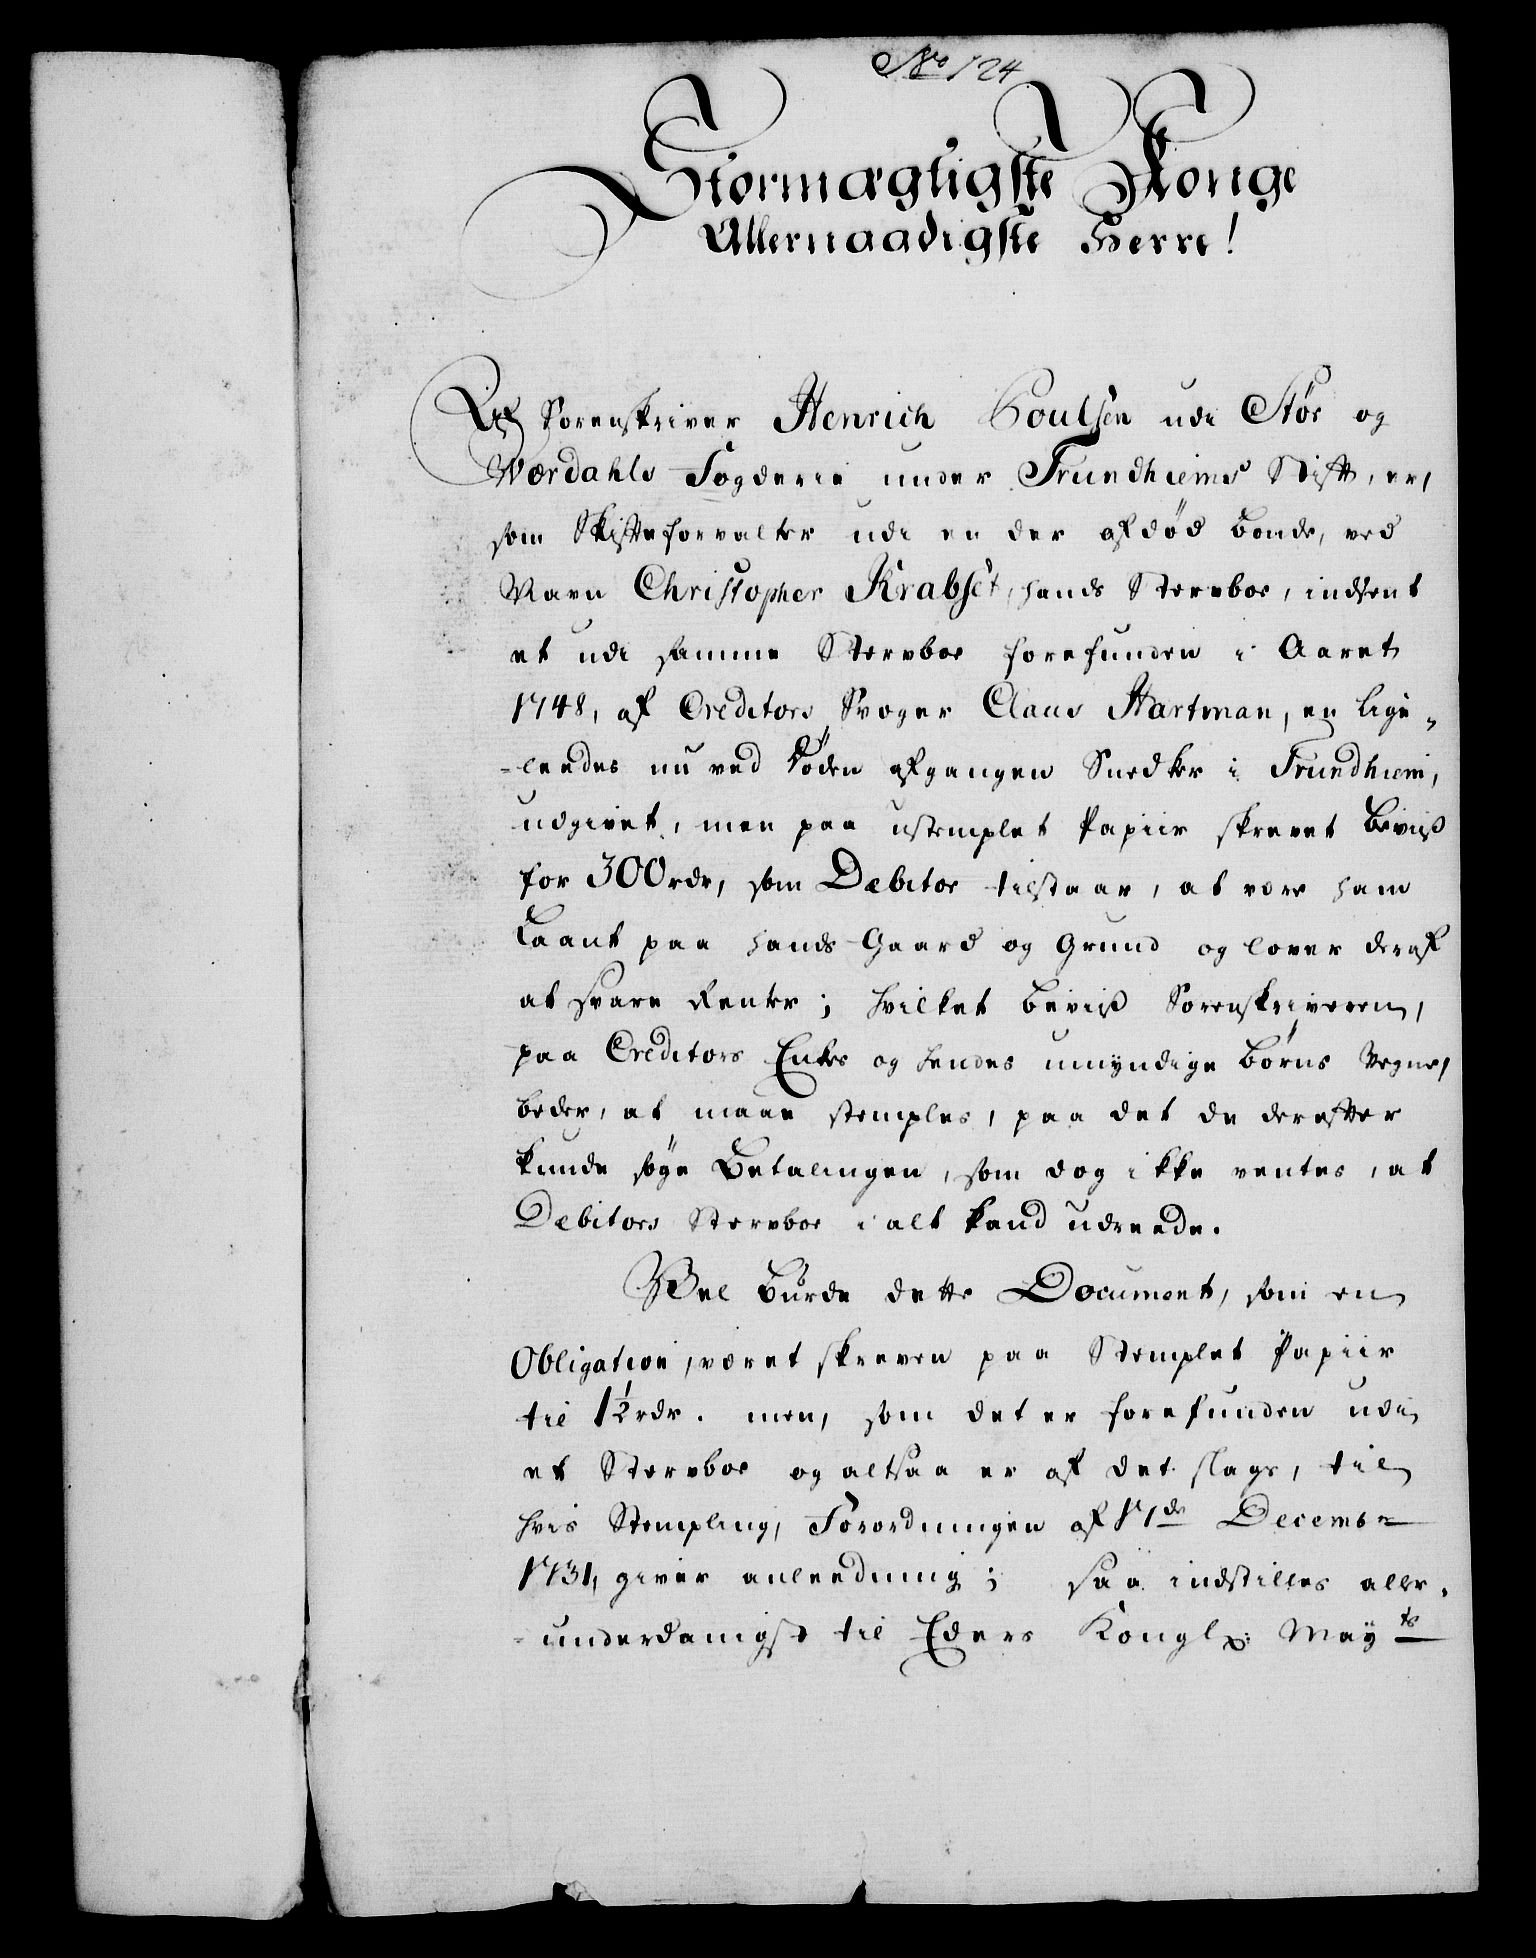 No 124
Stormægtigste Konge
Allernaadigste Herre!
Af Sorenskriver Henrich Houlsen udi Stør og
Værdahls Fogderie under Trundhiems Stift, er,
som Skifteforvalter udi en der afdød bonde, ved
Navn Christopher Krabset, hands Stervboe, indsent
et udi samme Stervboe forefunden i Aaret
1748, af Creditors Svoger Claus Hartman, en lige-
-leedes nu ved Døden afgangen Snedker i Trundhiem,
udgivet, men paa ustemplet Papiir skrevet Beviiß
for 300 rdr, som Debitor tilstaar, at være ham
Laant paa hands Gaard og Grund og lover deraf
at svare Renter; hvilket beviiß Sorenskriveren,
paa Creditors Enkes og hendes umyndige børns Vegne,
beder, at maae stemples, paa det de derefter
kunde søge Betalingen, som dog ikke ventes, at
Debitors Stervboe i alt kand udreede.
Vel burde dette Document, som en
Obligation, været skreven paa Stemplet Papiir
til 1½ rdr. men, som det er forefunden udi
et Stervboe og altsaa er af det slags, til
hvis Stempling, Forordningen af 17de Decembr
1731, giver anleedning; saa indstilles aller-
-underdanigst til Eders Kongl: Mayts